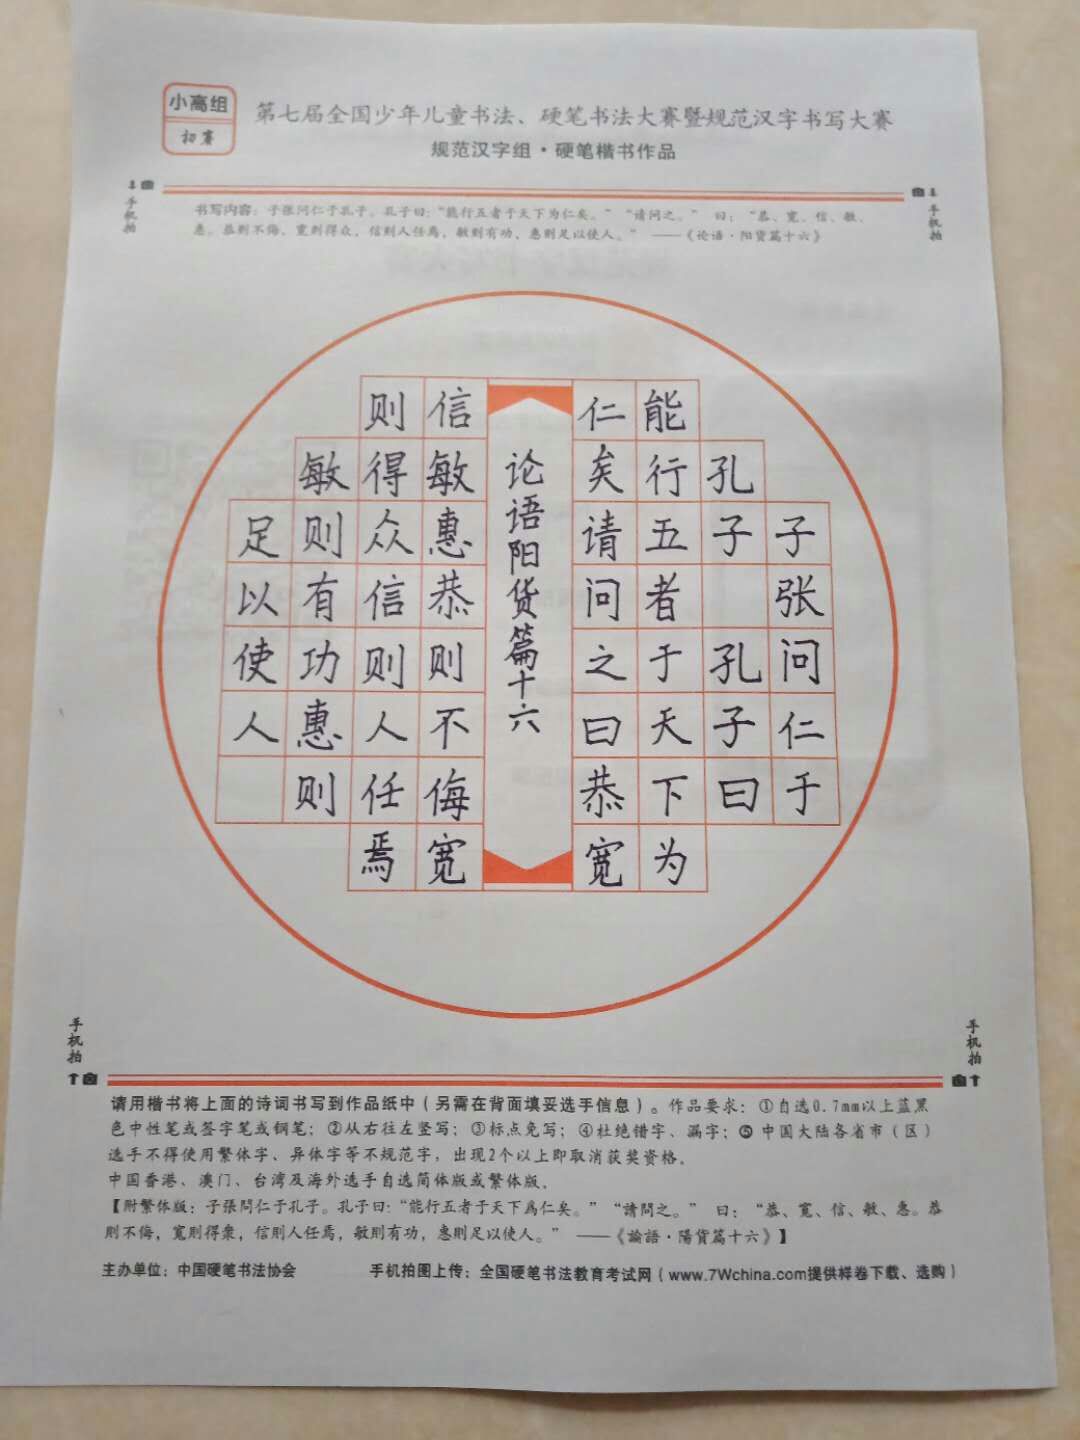 小高组
初赛
第七届全国少年儿童书法、硬笔书法大赛暨规范汉字书写大赛
规范汉字组·硬笔楷书作品
手机拍
手机拍
书写内容：子张问仁于孔子。孔子曰：“能行五者于天下为仁矣。” “请问之。” 曰：“恭、宽、信、敏、
惠。恭则不侮，宽则得众，信则人任焉，敏则有功，惠则足以使人。” ——《论语·阳货篇十六》
子张问仁于
孔子 孔子曰
能行五者于天下为
仁矣请问之曰恭宽
论语阳货篇十六
信敏惠恭则不侮宽
则得众信则人任焉
敏则有功惠则
足以使人
手机拍
手机拍
请用楷书将上面的诗词书写到作品纸中（另需在背面填妥选手信息）。作品要求：①自选0.7mm以上蓝黑
色中性笔或签字笔或钢笔；②从右往左竖写；③标点免写；④杜绝错字、漏字；⑤中国大陆各省市（区）
选手不得使用繁体字、异体字等不规范字，出现2个以上即取消获奖资格。
中国香港、澳门、台湾及海外选手自选简体版或繁体版。
【附繁体版：子張問仁于孔子。孔子曰：“能行五者于天下爲仁矣。” “請問之。” 曰：“恭、寬、信、敏、惠。恭
則不侮，寬則得衆，信則人任焉，敏則有功，惠則足以使人。” ——《論語·陽貨篇十六》】
主办单位：中国硬笔书法协会 手机拍图上传：全国硬笔书法教育考试网（www.7Wchina.com提供样卷下载、选购）